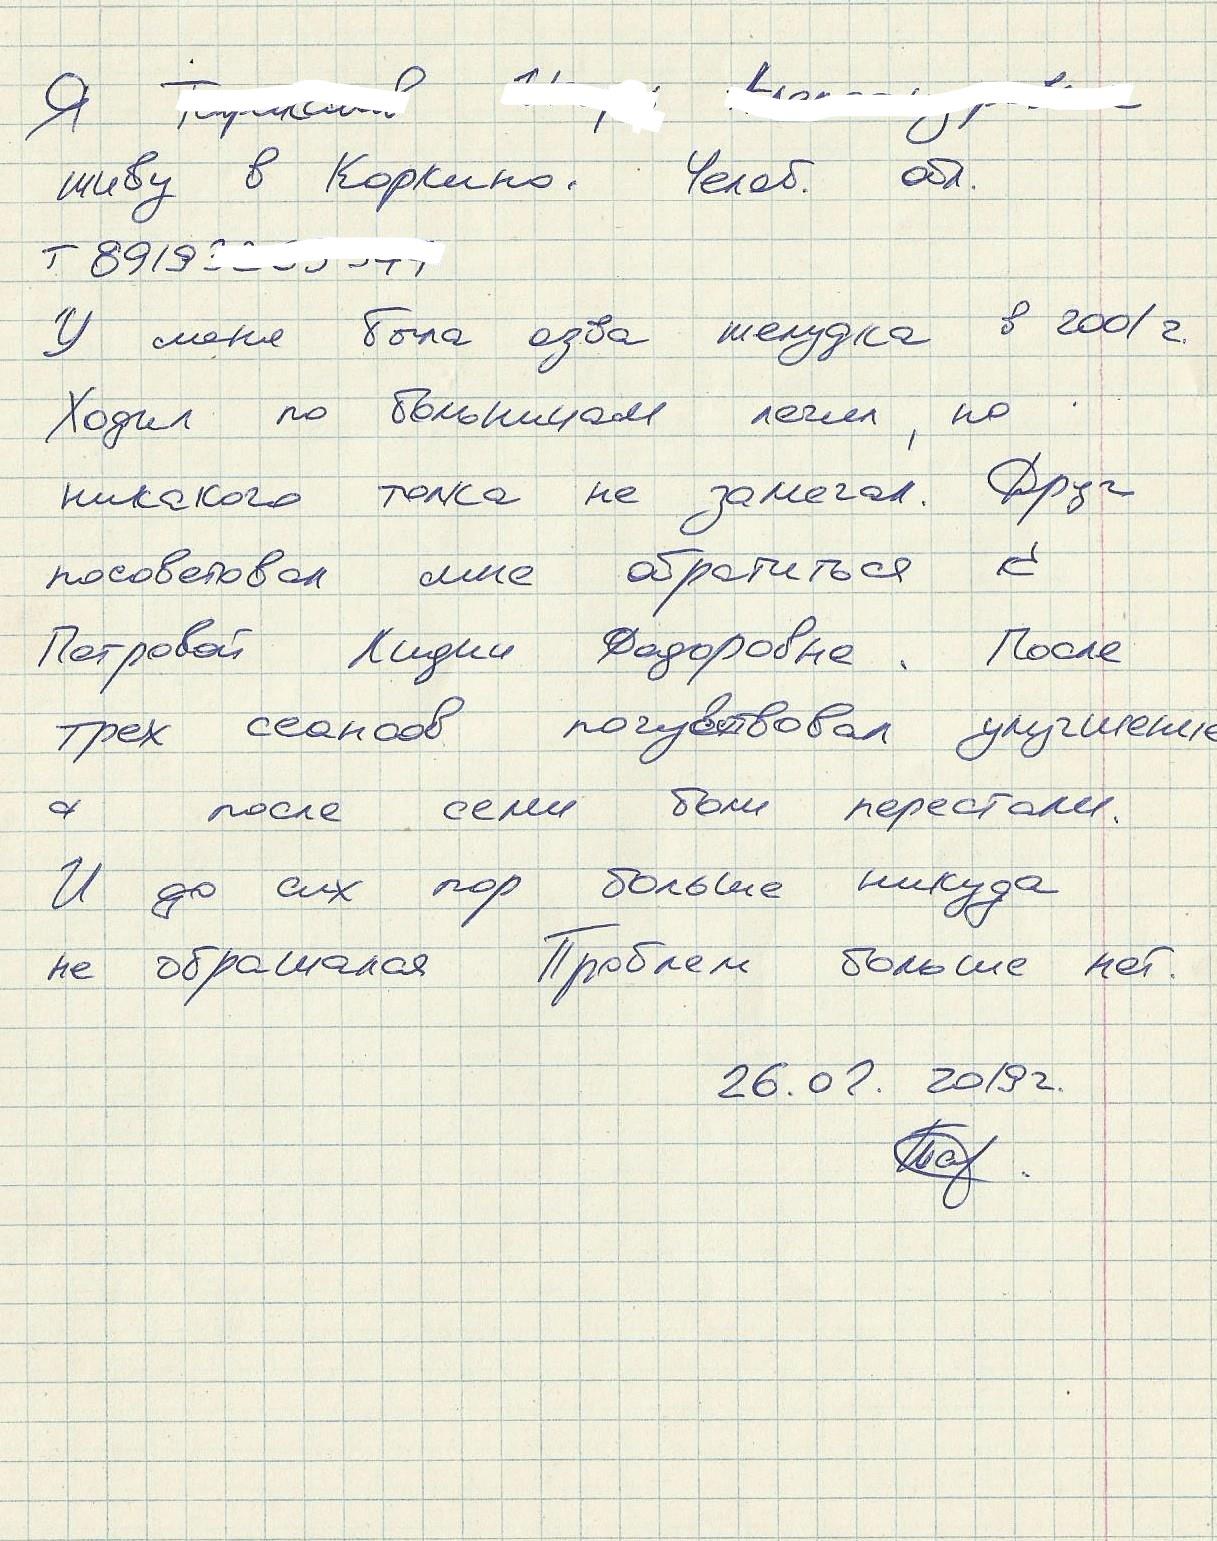 Я
живу в Коркино. Челяб. обл.
т 8919
У меня была язва желудка в 2001 г.
Ходил по больницам лечил, но
никакого толка не замечал. Друг
посоветовал мне обратиться к
Петровой Лидии Федоровне. После
трех сеансов почувствовал улучшение
а после семи боли перестали.
И до сих пор больше никуда
не обращался Проблем больше нет.
26.02. 2019 г.